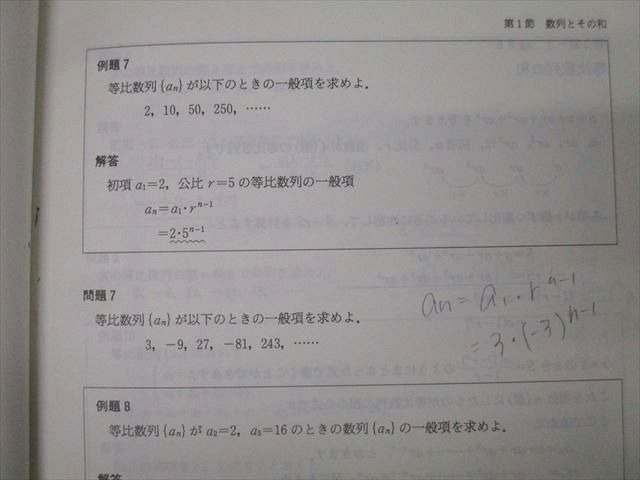 第1節 数列とその和
例題7
等比数列 {an} が以下のときの一般項を求めよ．
2, 10, 50, 250, ……
解答
初項 a₁=2, 公比 r=5 の等比数列の一般項
aₙ=a₁・rⁿ⁻¹
=2・5ⁿ⁻¹
問題7
等比数列 {an} が以下のときの一般項を求めよ．
3, −9, 27, −81, 243, ……
an = a₁・rⁿ⁻¹
= 3・(-3)ⁿ⁻¹
例題8
等比数列 {an} が a₂=2, a₅=16 のときの数列 {an} の一般項を求めよ．
解答